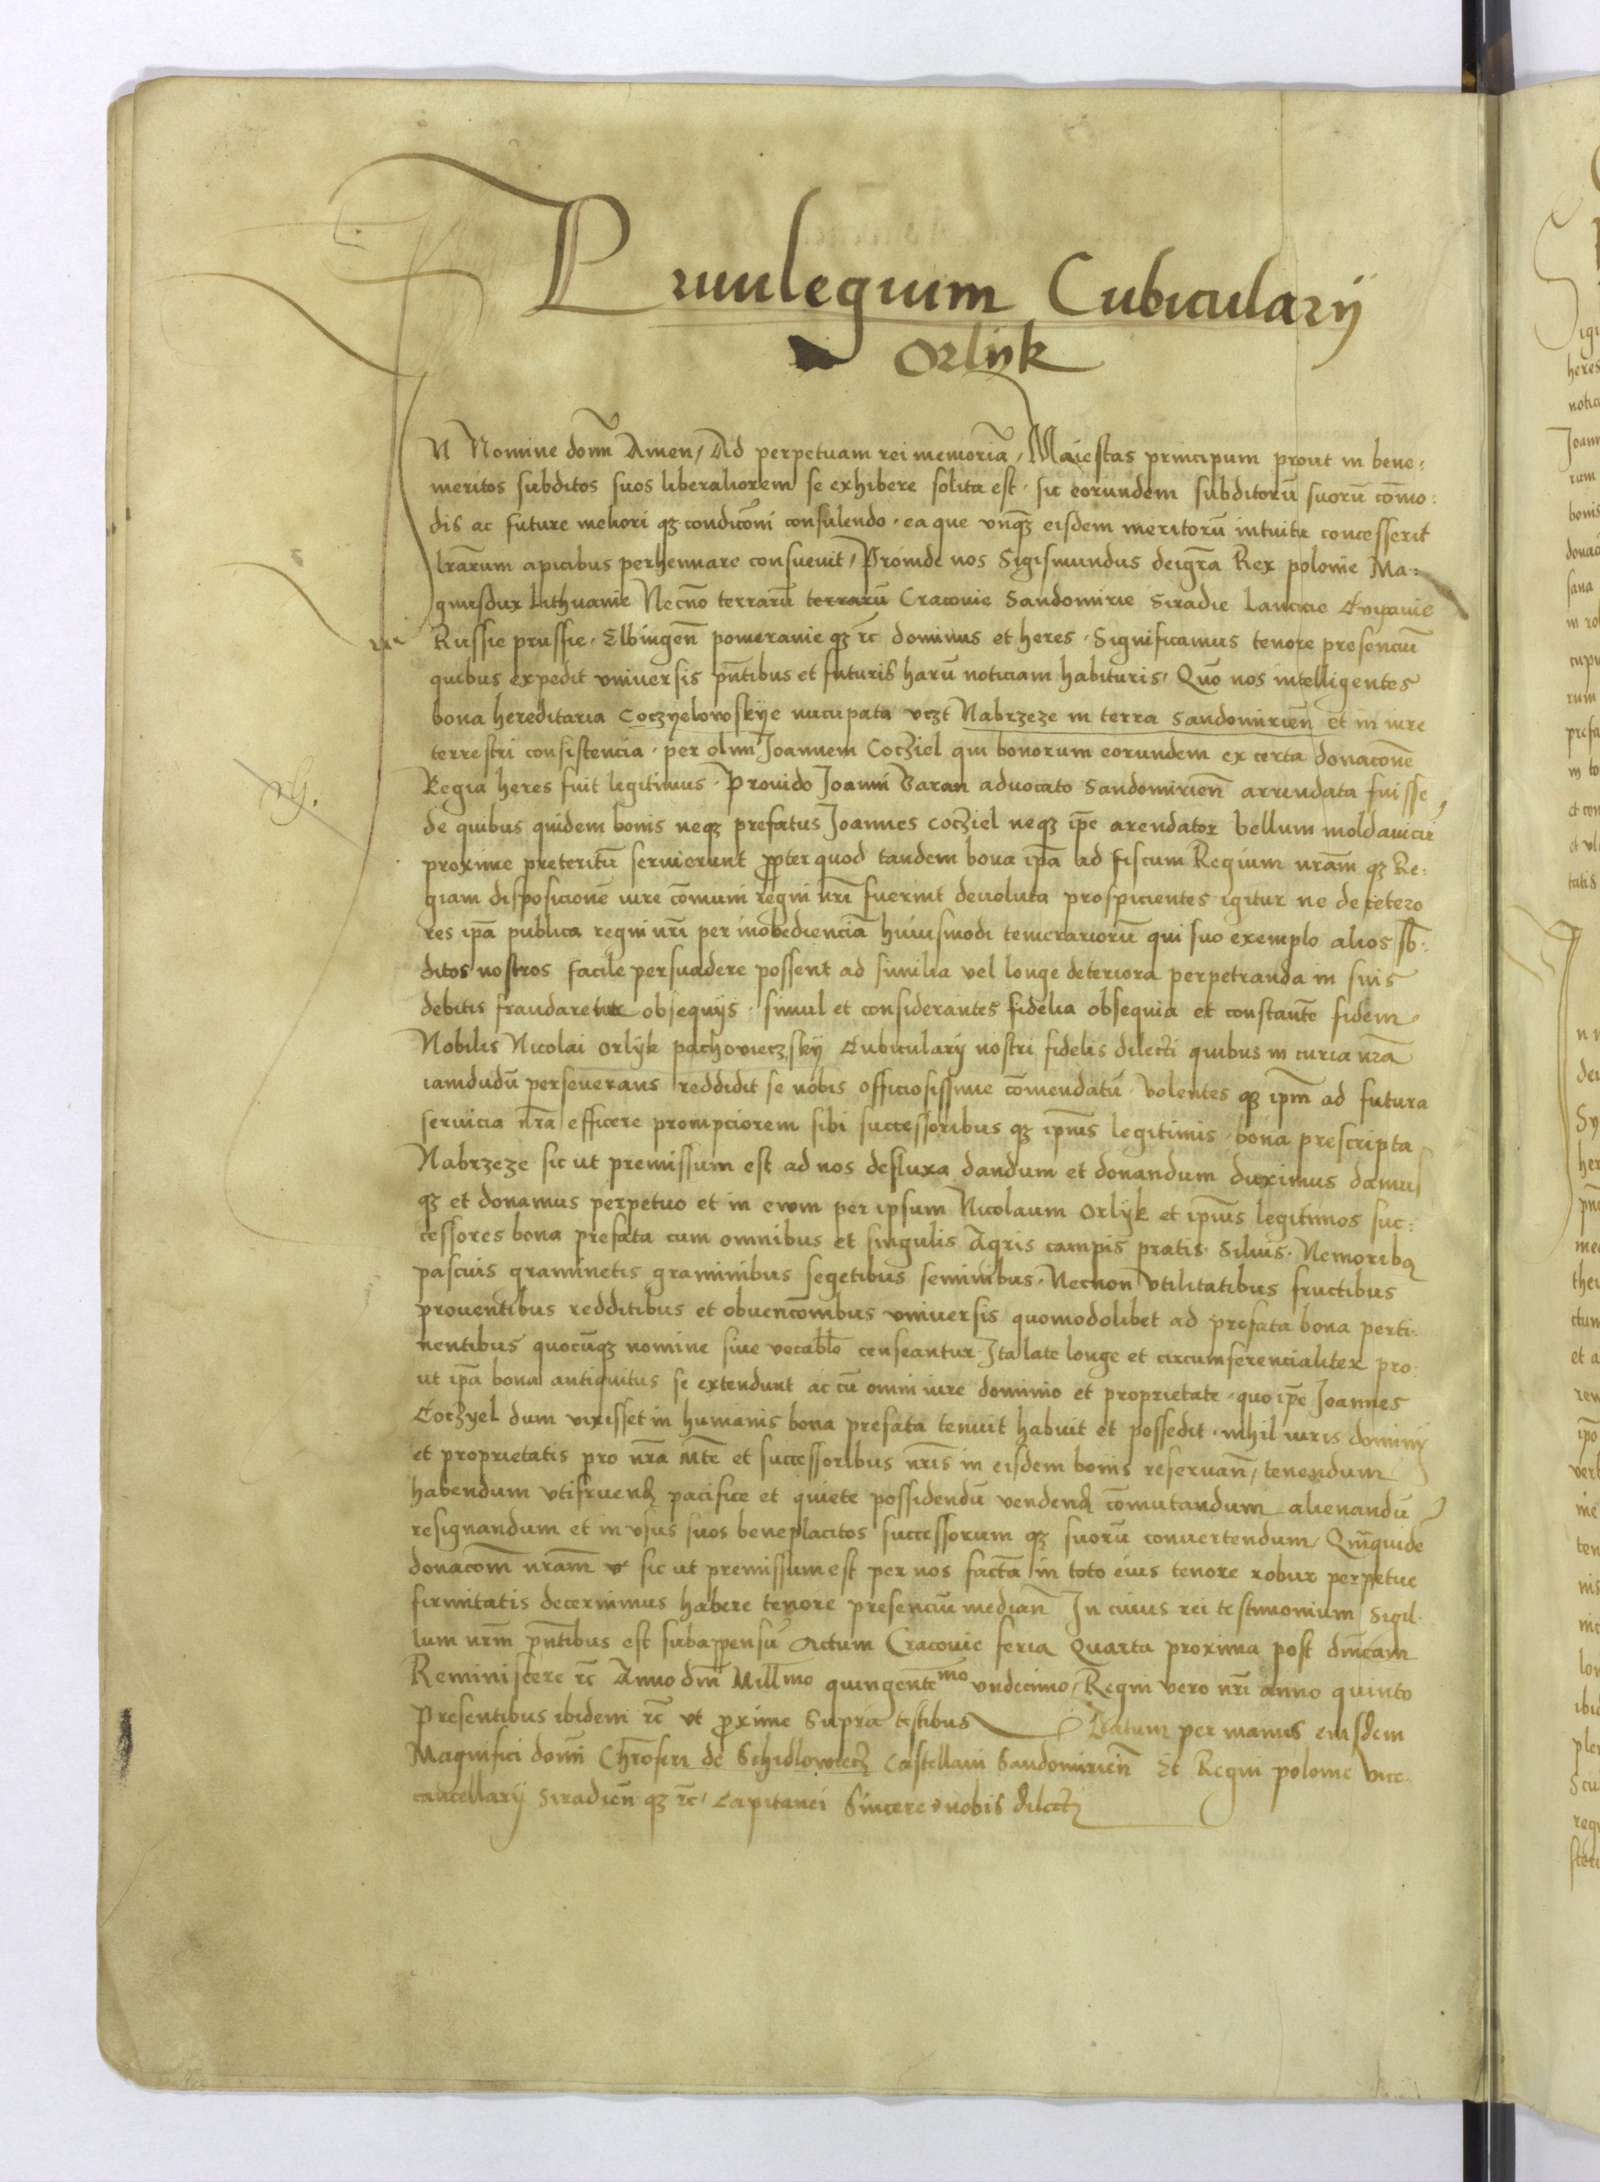 Priuilegium Cubicularij
Orlijk
IN Nomine domī Amen / Ad perpetuam rei memoriā / Maiestas principum prout in bene:
meritos subditos suos liberaliorem se exhibere solita est · sic eorundem subditorū suorū cōmo:
dis ac future meliori qꝫ condicōni consulendo · ea que vnqꝫ eisdem meritorū intuitu concesserit
lrārum apicibus perhennare consueuit / Proinde nos Sigismundus deigrā Rex polonie Ma:
gnusdux Lithuanie Necnō terrarū terrarū Cracouie Sandomirie Siradie Lancicie Cuyauie
Russie prussie · Elbingeñ pomeranie qꝫ rc̄ dominus et heres · Significamus tenore presenciū
quibus expedit vniuersis pn̄tibus et futuris harū noticiam habituris / Quō nos intelligentes
bona hereditaria Coczyelowskye nūcupata vczt Nabrzeze in terra Sandomirieñ et in iure
terrestri consistencia · per olim Joannem Cocziel qui bonorum eorundem ex certa donacōne
Regia heres fuit legitimus · Prouido Joanni Baran aduocato Sandomirieñ arrendata fuisse
de quibus quidem bonis neqꝫ prefatus Joannes Cocziel neqꝫ ip̄e arendator bellum moldauicū
proxime preteritū seruierunt ꝓpter quod tandem bona ip̄a ad fiscum Regium nrām qꝫ Re:
giam disposicionē iure cōmuni regni nrī fuerint deuoluta prospicientes igitur ne de cetero
res ip̄a publica regni nrī per inobedienciā huiusmodi temerariorū qui suo exemplo alios sb̄:
ditos nostros facile persuadere possent ad similia vel longe deteriora perpetranda in suis
debitis fraudaretur obsequijs · simul et considerantes fidelia obsequia et constantē fidem
Nobilis Nicolai Orlijk pachovieczskij Cubicularij nostri fidelis dilecti quibus in curia nrā
iamdudū perseuerans reddidit se nobis officiosissime cōmendatū · volentes qꝫ ipm̄ ad futura
seruicia nrā efficere prompciorem sibi successoribus qꝫ ipīus legitimis · bona prescripta
Nabrzeze sic ut premissum est ad nos defluxa dandum et donandum duximus damus
qꝫ et donamus perpetuo et in ewm per ipsum Nicolaum Orlijk et ipīus legitimos suc:
cessores bona prefata cum omnibus et singulis Agris campis pratis · Siluis · Nemoribꝫ
pascuis graminetis graminibus segetibus seminibus · Necnon vtilitatibus fructibus
prouentibus redditibus et obuencōnibus vniuersis quomodolibet ad prefata bona perti:
nentibus quocūqꝫ nomine siue vocablō censeantur · Ita late longe et circumferencialiter pro:
ut ip̄a bona antiquitus se extendunt ac cū omni iure dominio et proprietate · quo ip̄e Joannes
Coczyel dum vixisset in humanis bona prefata tenuit habuit et possedit · nihil iuris dominij
et proprietatis pro nrā Mt̄e et successoribus nrīs in eisdem bonis reseruañ / tenendum
habendum vtifruenḍ pacifice et quiete possidendū vendenḍ cōmutandum alienandū
resignandum et in vsus suos beneplacitos successorum qꝫ suorū conuertendum / Qm̄quidē
donacōm nrām vt sic ut premissum est per nos factā in toto eius tenore robur perpetue
firmitatis decernimus habere tenore presenciū mediañ In cuius rei testimonium Sigil:
lum nrm̄ pn̄tibus est subappensū Actum Cracouie feria Quarta proxima post dn̄icam
Reminiscere rc̄ Anno dnī Millīmo quingentēmo vndecimo / Regni vero nrī anno quinto
Presentibus ibidem rc̄ vt ꝓxime Supra testibus Datum per manus eiusdem
Magnifici domī Chrōferi de Schidlowiecz Castellani Sandomirieñ Et Regni polonie vice:
cancellarij Siradieñ qꝫ rc̄ / Capitanei Sincere nobis dilecti